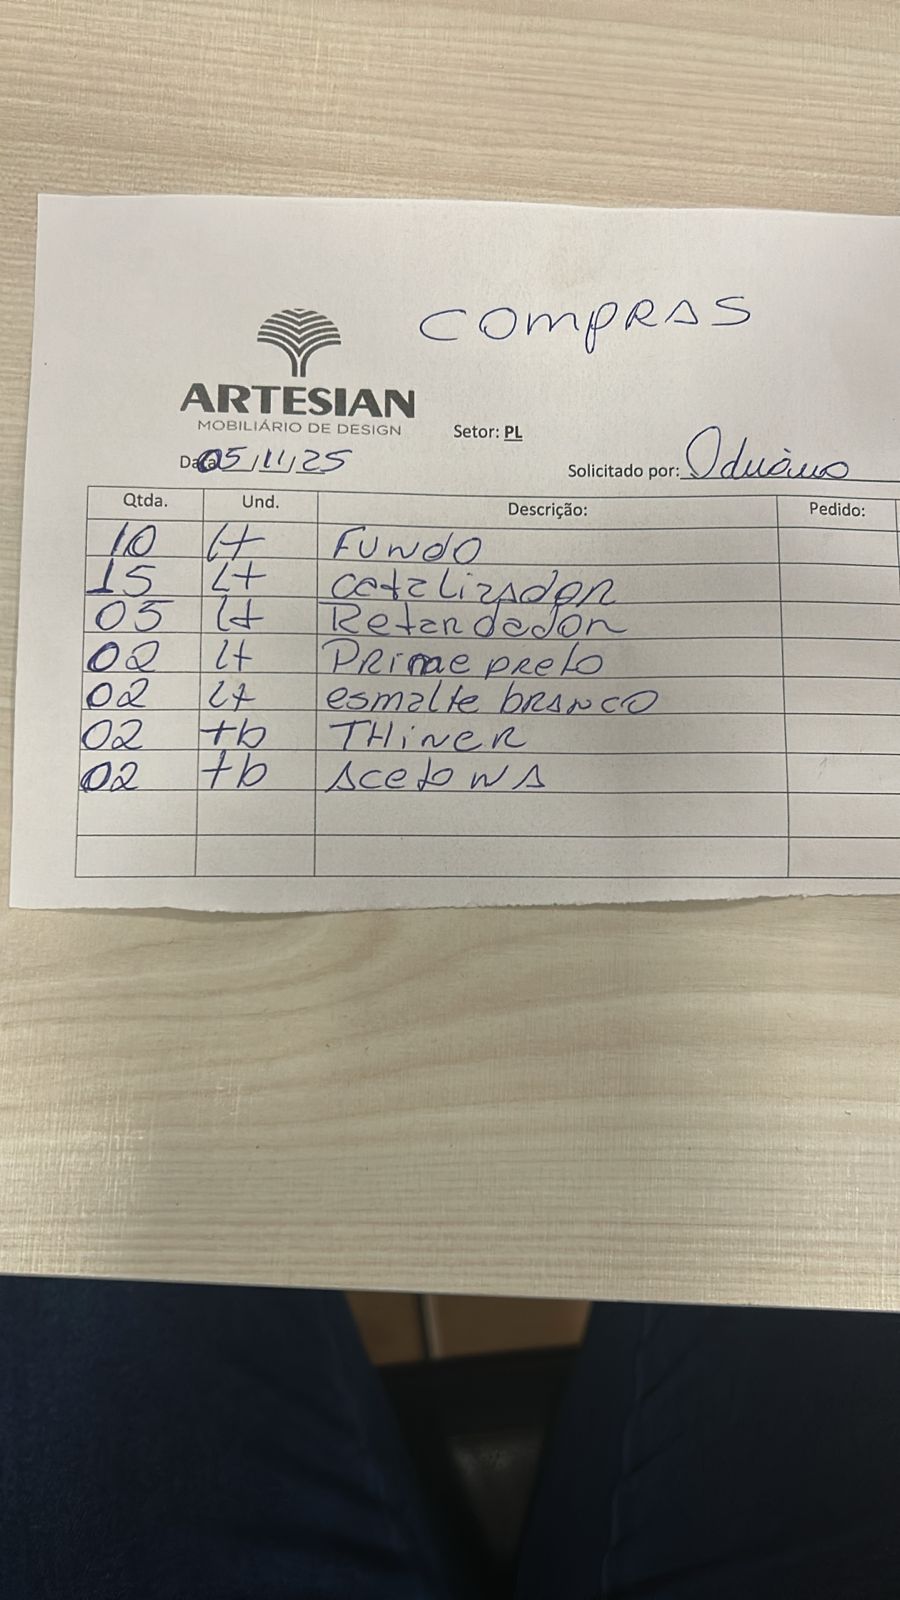 COMPRAS
ARTESIAN
MOBILIÁRIO DE DESIGN
Setor: PL
Data 05/11/25
Solicitado por:
Qtda. Und. Descrição: Pedido:
10 Lt FUNDO
15 Lt catalizador
05 Lt Retardador
02 Lt PRime preto
02 Lt esmalte bRANCO
02 tb THiNER
02 tb AcetoNA